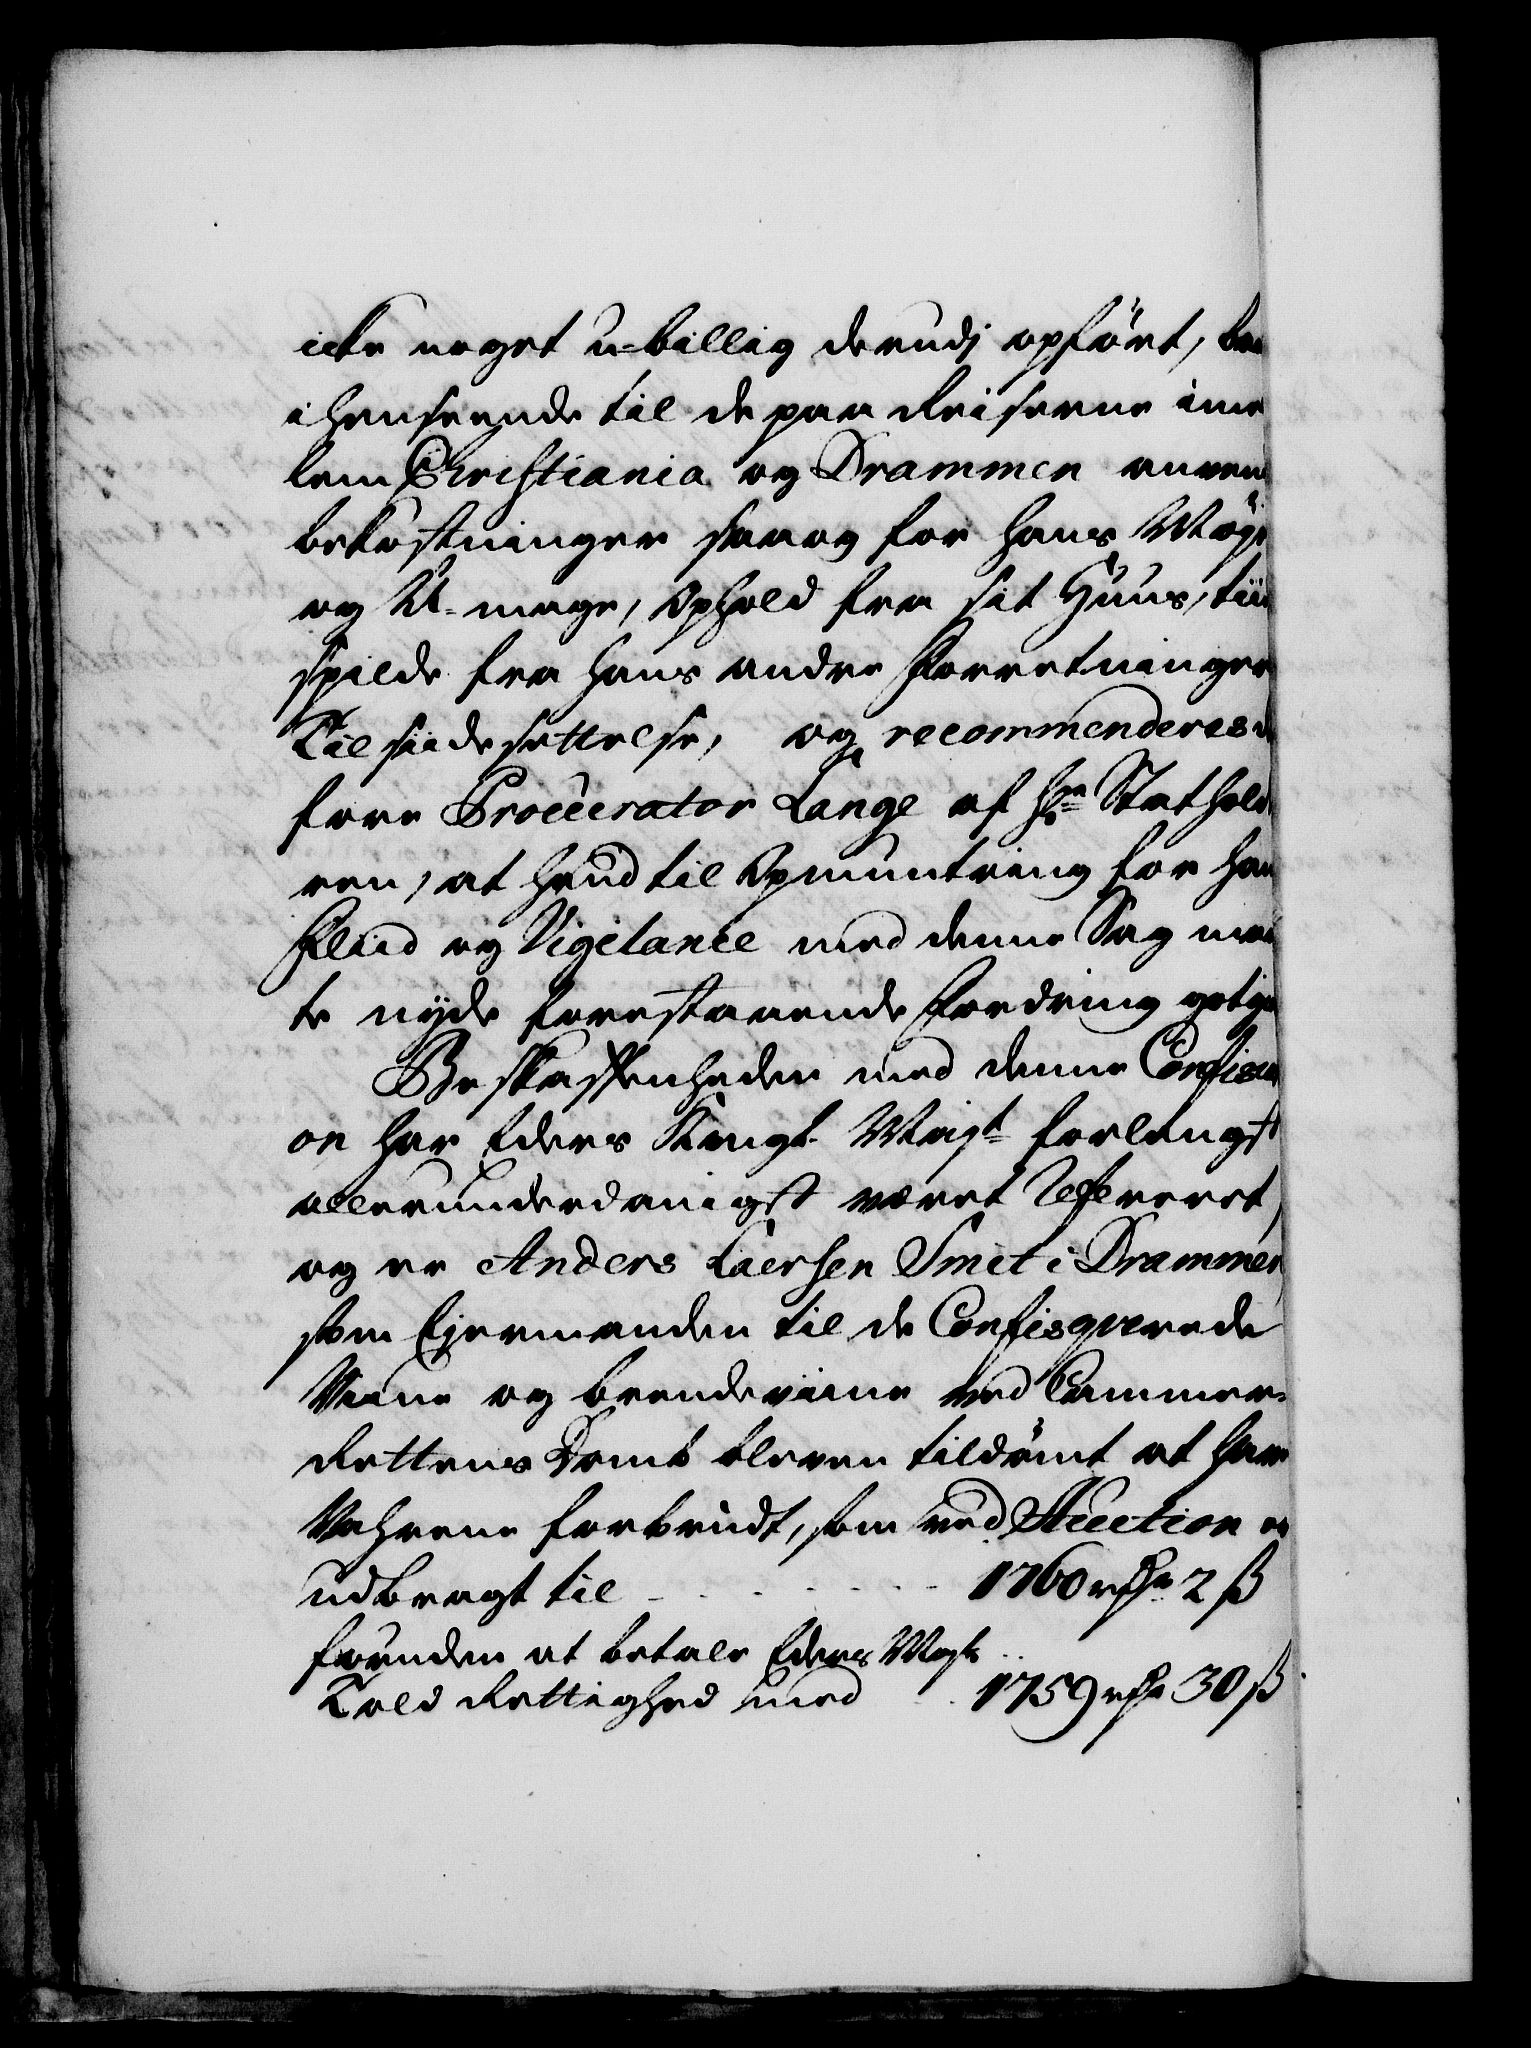 icke noget u-billig derudj opført,
i henseende til de paa Reiserne ime
lem Christiania og Drammen anven
bekostninger saa og for hans Møye
og U-mage, Ophold fra sit Huus, tiid
spilde fra hans andre Forretninger
Tilsiidesettelse, og recommenderes
fore Procurator Lange af Hr. Stathold
ren, at hand til Opmuntring for han
Fliid og Vigilance med denne Sag maa
te nyde forestaaende Fordring gotgi
Beskaffenheden med denne Confiscat
on har Eders Kongl. Mayt. forlengst
allerunderdanigst været Refereret,
og er Anders Laersen Smit i Drammen
som Ejermanden til de Confisqverede
Viine og brendeviine ved Cammer-
Rettens Domb bleven tildømt at have
Vahrene forbrudt, som ved Auction er
udbragt til - - - - - - 1760 rdr 2 ß
foruden at betale Eders Mayts
Told Rettighed med - - 1759 rdr 30 ß